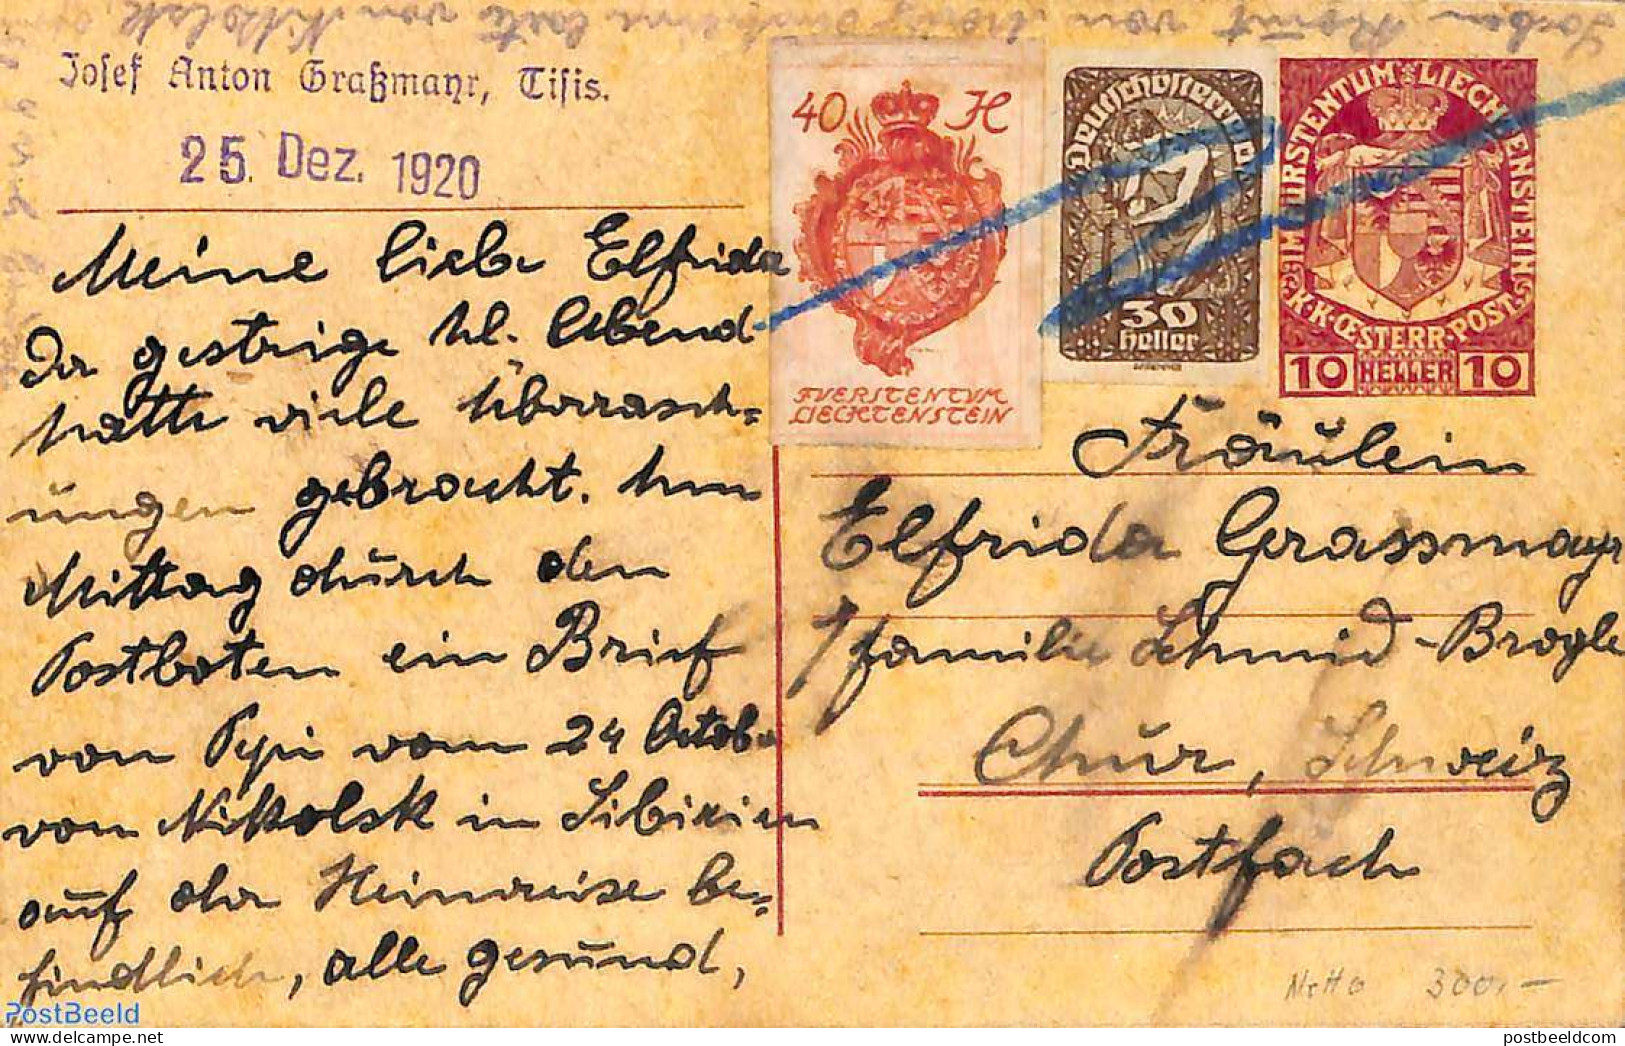 Josef Anton Graßmayr, Tisis.
25. Dez. 1920
Meine liebe Elfrida
Der gestrige hl. Abend
hatte viele Überrasch=
ungen gebracht. Am
Mittag durch den
Postboten ein Brief
von Pepi vom 24 October
von Nikolsk in Sibirien
auf der Heimreise be=
findlich, alle gesund,
40 H
FVERSTENTVM
LIECHTENSTEIN
Deutschösterreich
30
Heller
IM FÜRSTENTUM LIECHTENSTEIN
K.K. OESTERR. POST
10 HELLER 10
Fräulein
Elfrida Grassmayr
Familie Schmid-Brogle
Chur, Schweiz
Postfach
Netto 300,-
PostBeeld
postbeeldcom
von Nikolsk